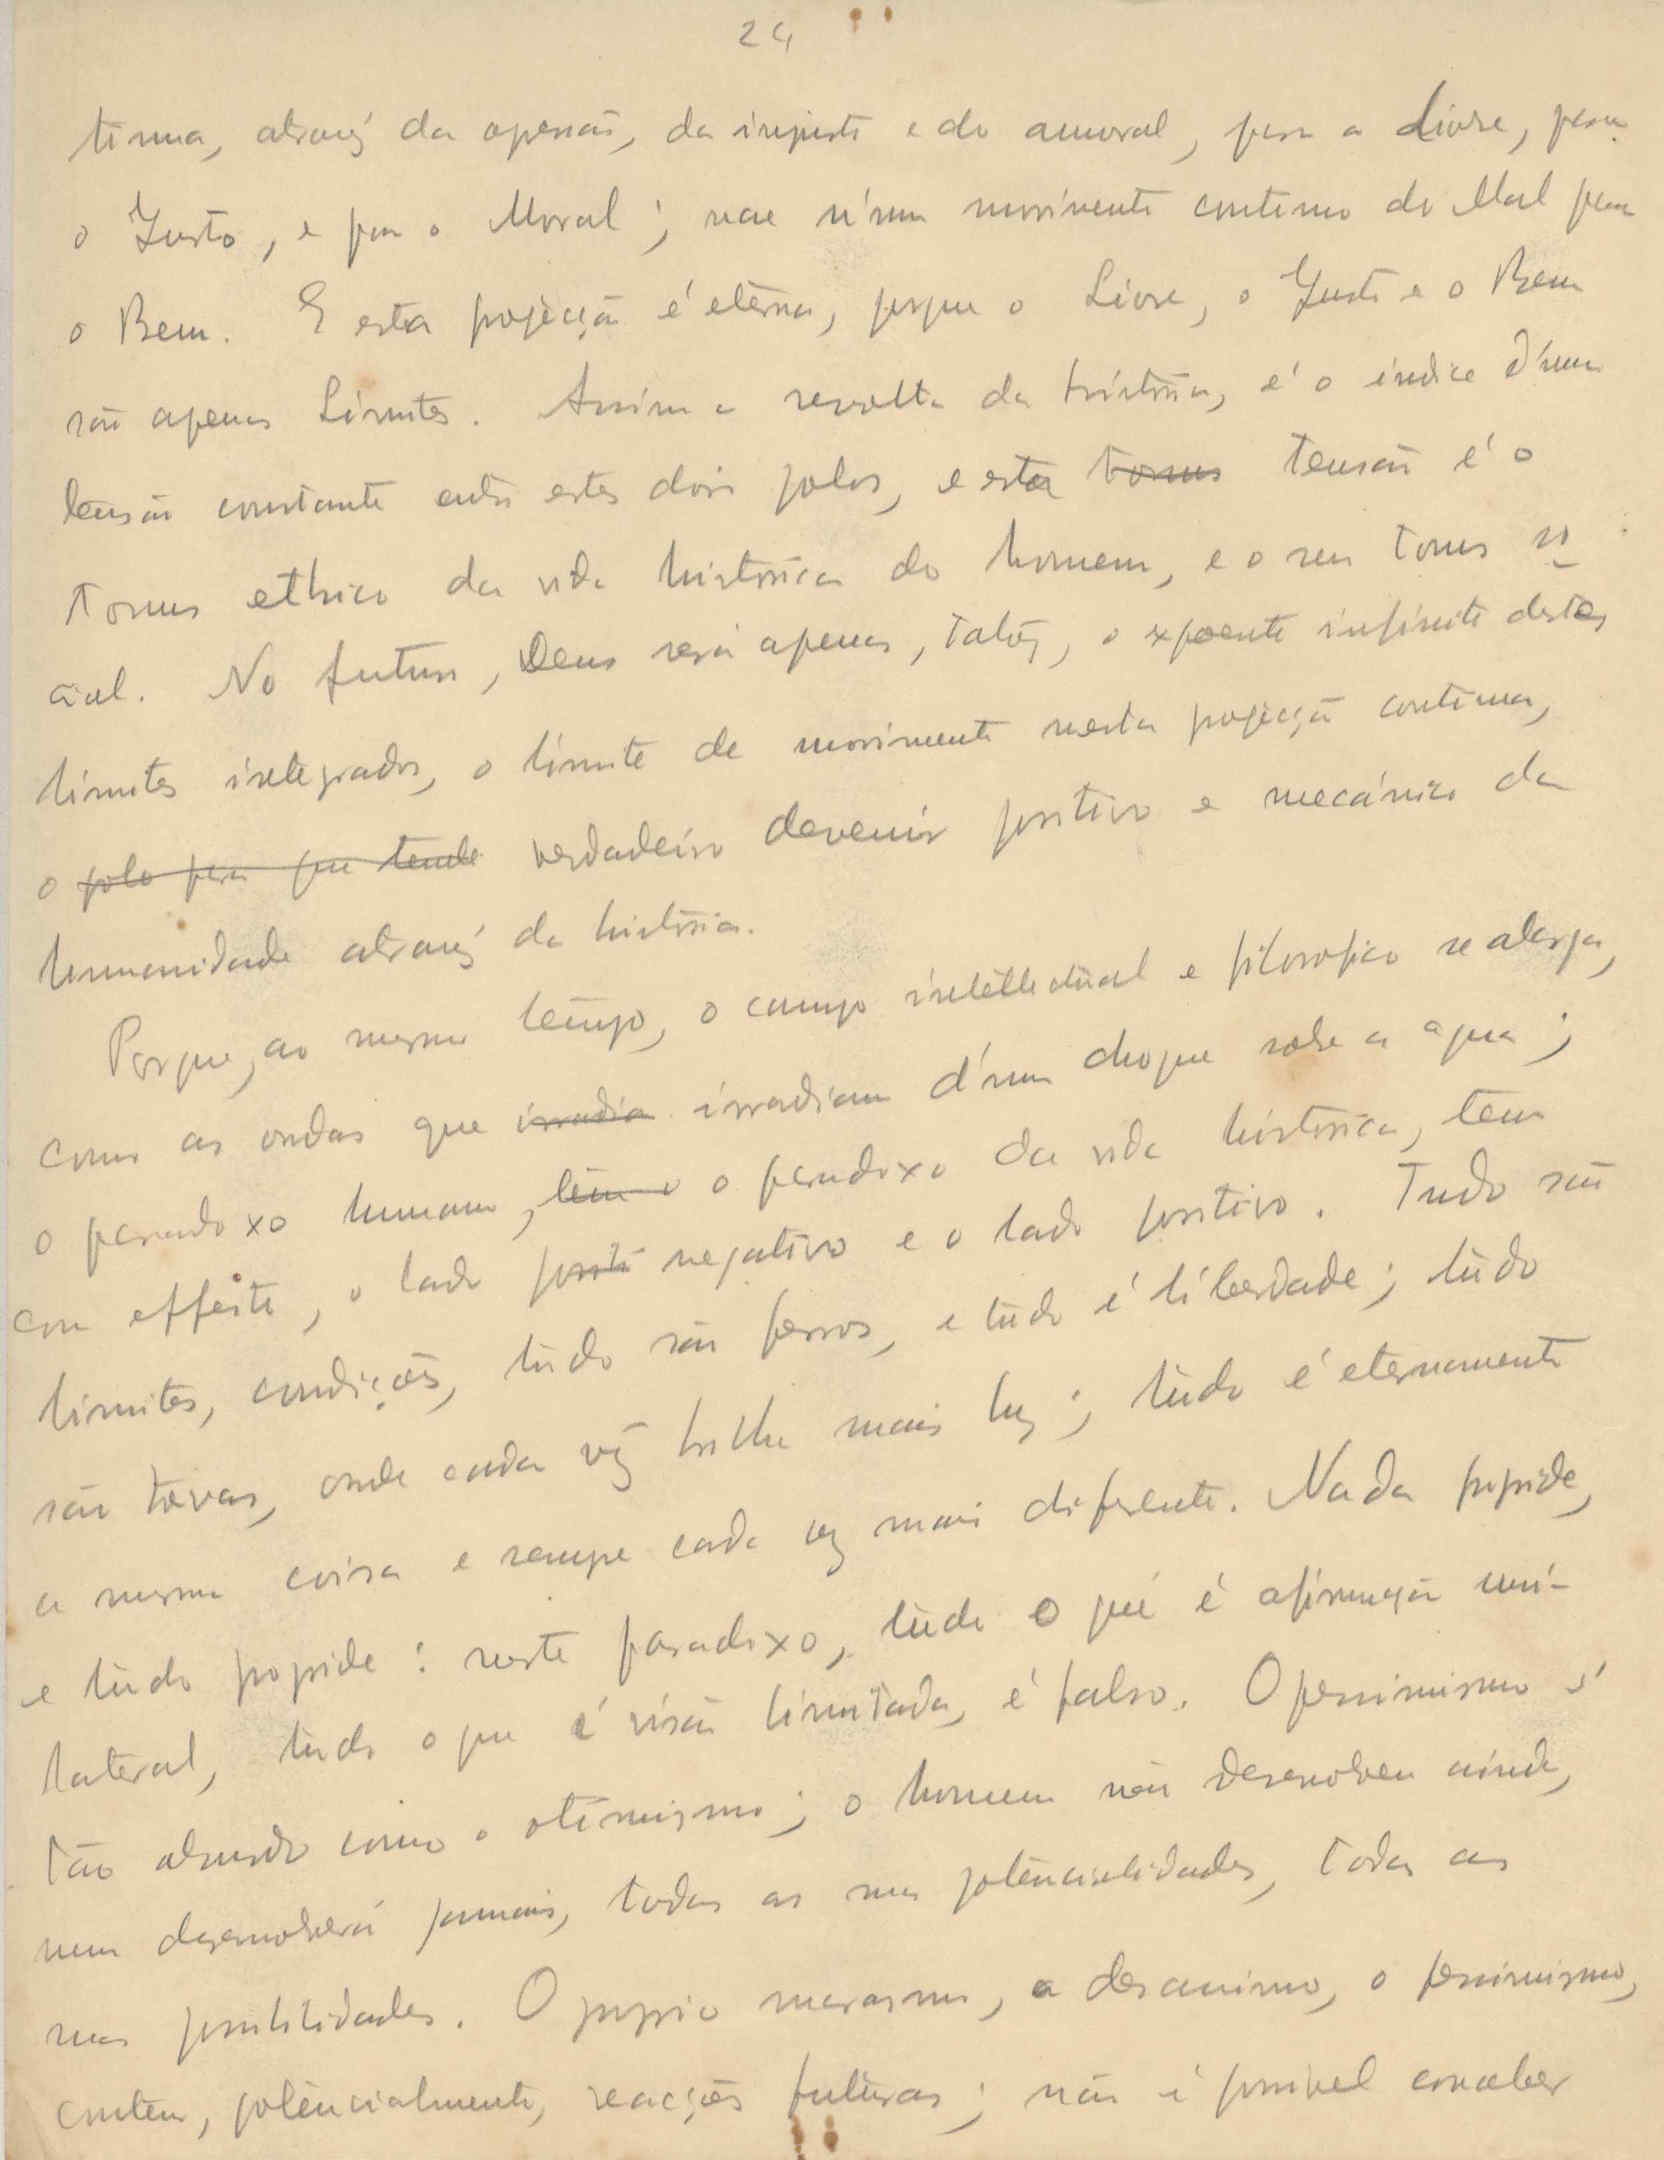 24
tinua, através da opressão, da injusti e do amoral, para a Livre, para
o Justo, e para o Moral; vae n'um movimento continuo do Mal para
o Bem. E esta projecção é eterna, porque o Livre, o Justo e o Bem
são apenas Limites. Assim a revolta da história, é o índice d'uma
tensão constante entre estes dois polos, e esta tonus tensão é o
tonus ethico da vida histórica do homem, e o seu tonus so
cial. No futuro, Deus será apenas, talvez, o expoente infinito destes
limites integrados, o limite de movimento nesta projecção continua,
o polo para que tende verdadeiro devenir positivo e mecánico da
humanidade através da história.
Porque, ao mesmo tempo, o campo intellectual e filosofico se alarga,
como as ondas que irradia irradiam d'um choque sobre a agua;
o paradoxo humano, tem o o paradoxo da vida histórica, tem
com effeito, o lado positi negativo e o lado positivo. Tudo são
limites, condições, tudo são ferros, e tudo é liberdade; tudo
são trevas, onde cada vez brilha mais luz; tudo é eternamente
a mesma coisa e sempre cada vez mais diferente. Nada progride,
e tudo progride: neste paradoxo, tudo o que é afirmação uni-
lateral, tudo o que é visão limitada, é falso. O pessimismo é
tão absurdo como o otimismo; o homem não desenvolveu ainda,
nem desenvolverá jamais, todas as suas potencialidades, todas as
suas possibilidades. O proprio marasmo, o desanimo, o pessimismo,
contem, potencialmente, reacções futuras; não é possivel conceber